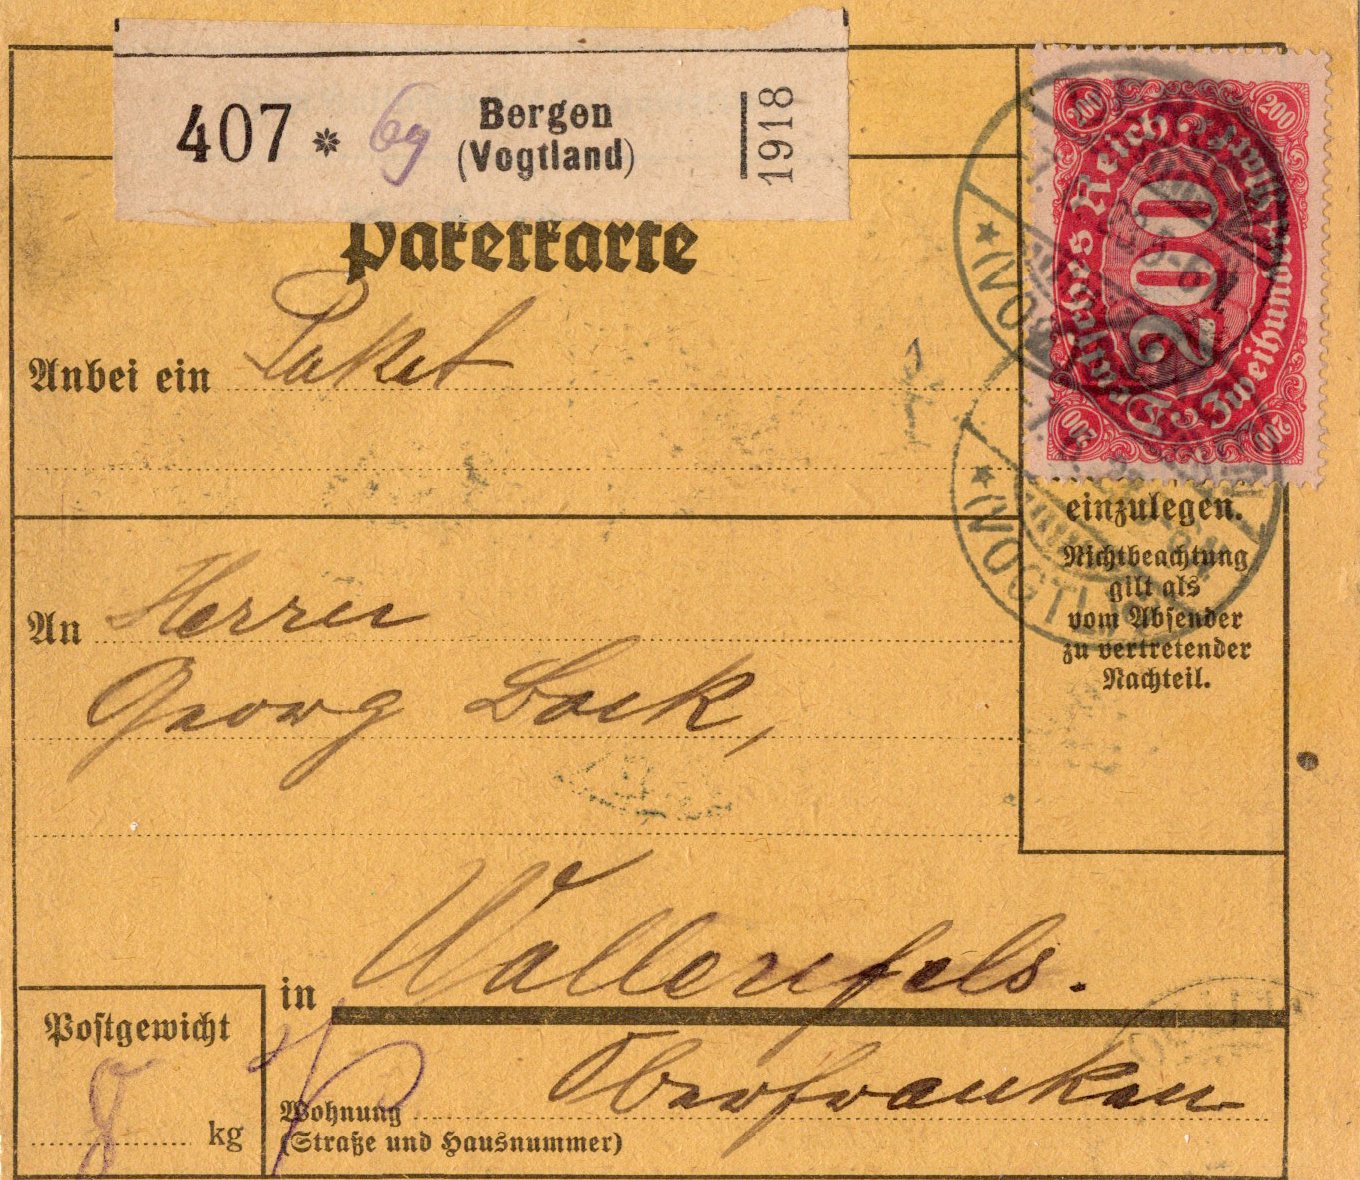 407 * 69 Bergen
(Vogtland)
1918
Paketkarte
Anbei ein Paket
200
200
Deutsches Reich
200
Zweihundert Mark
200
200
VOGTL
einzulegen.
Nichtbeachtung
gilt als
vom Absender
zu vertretender
Nachteil.
An Herrn
Georg Bock,
in Wallenfels.
Oberfranken
Postgewicht
8 kg
Wohnung
(Straße und Hausnummer)